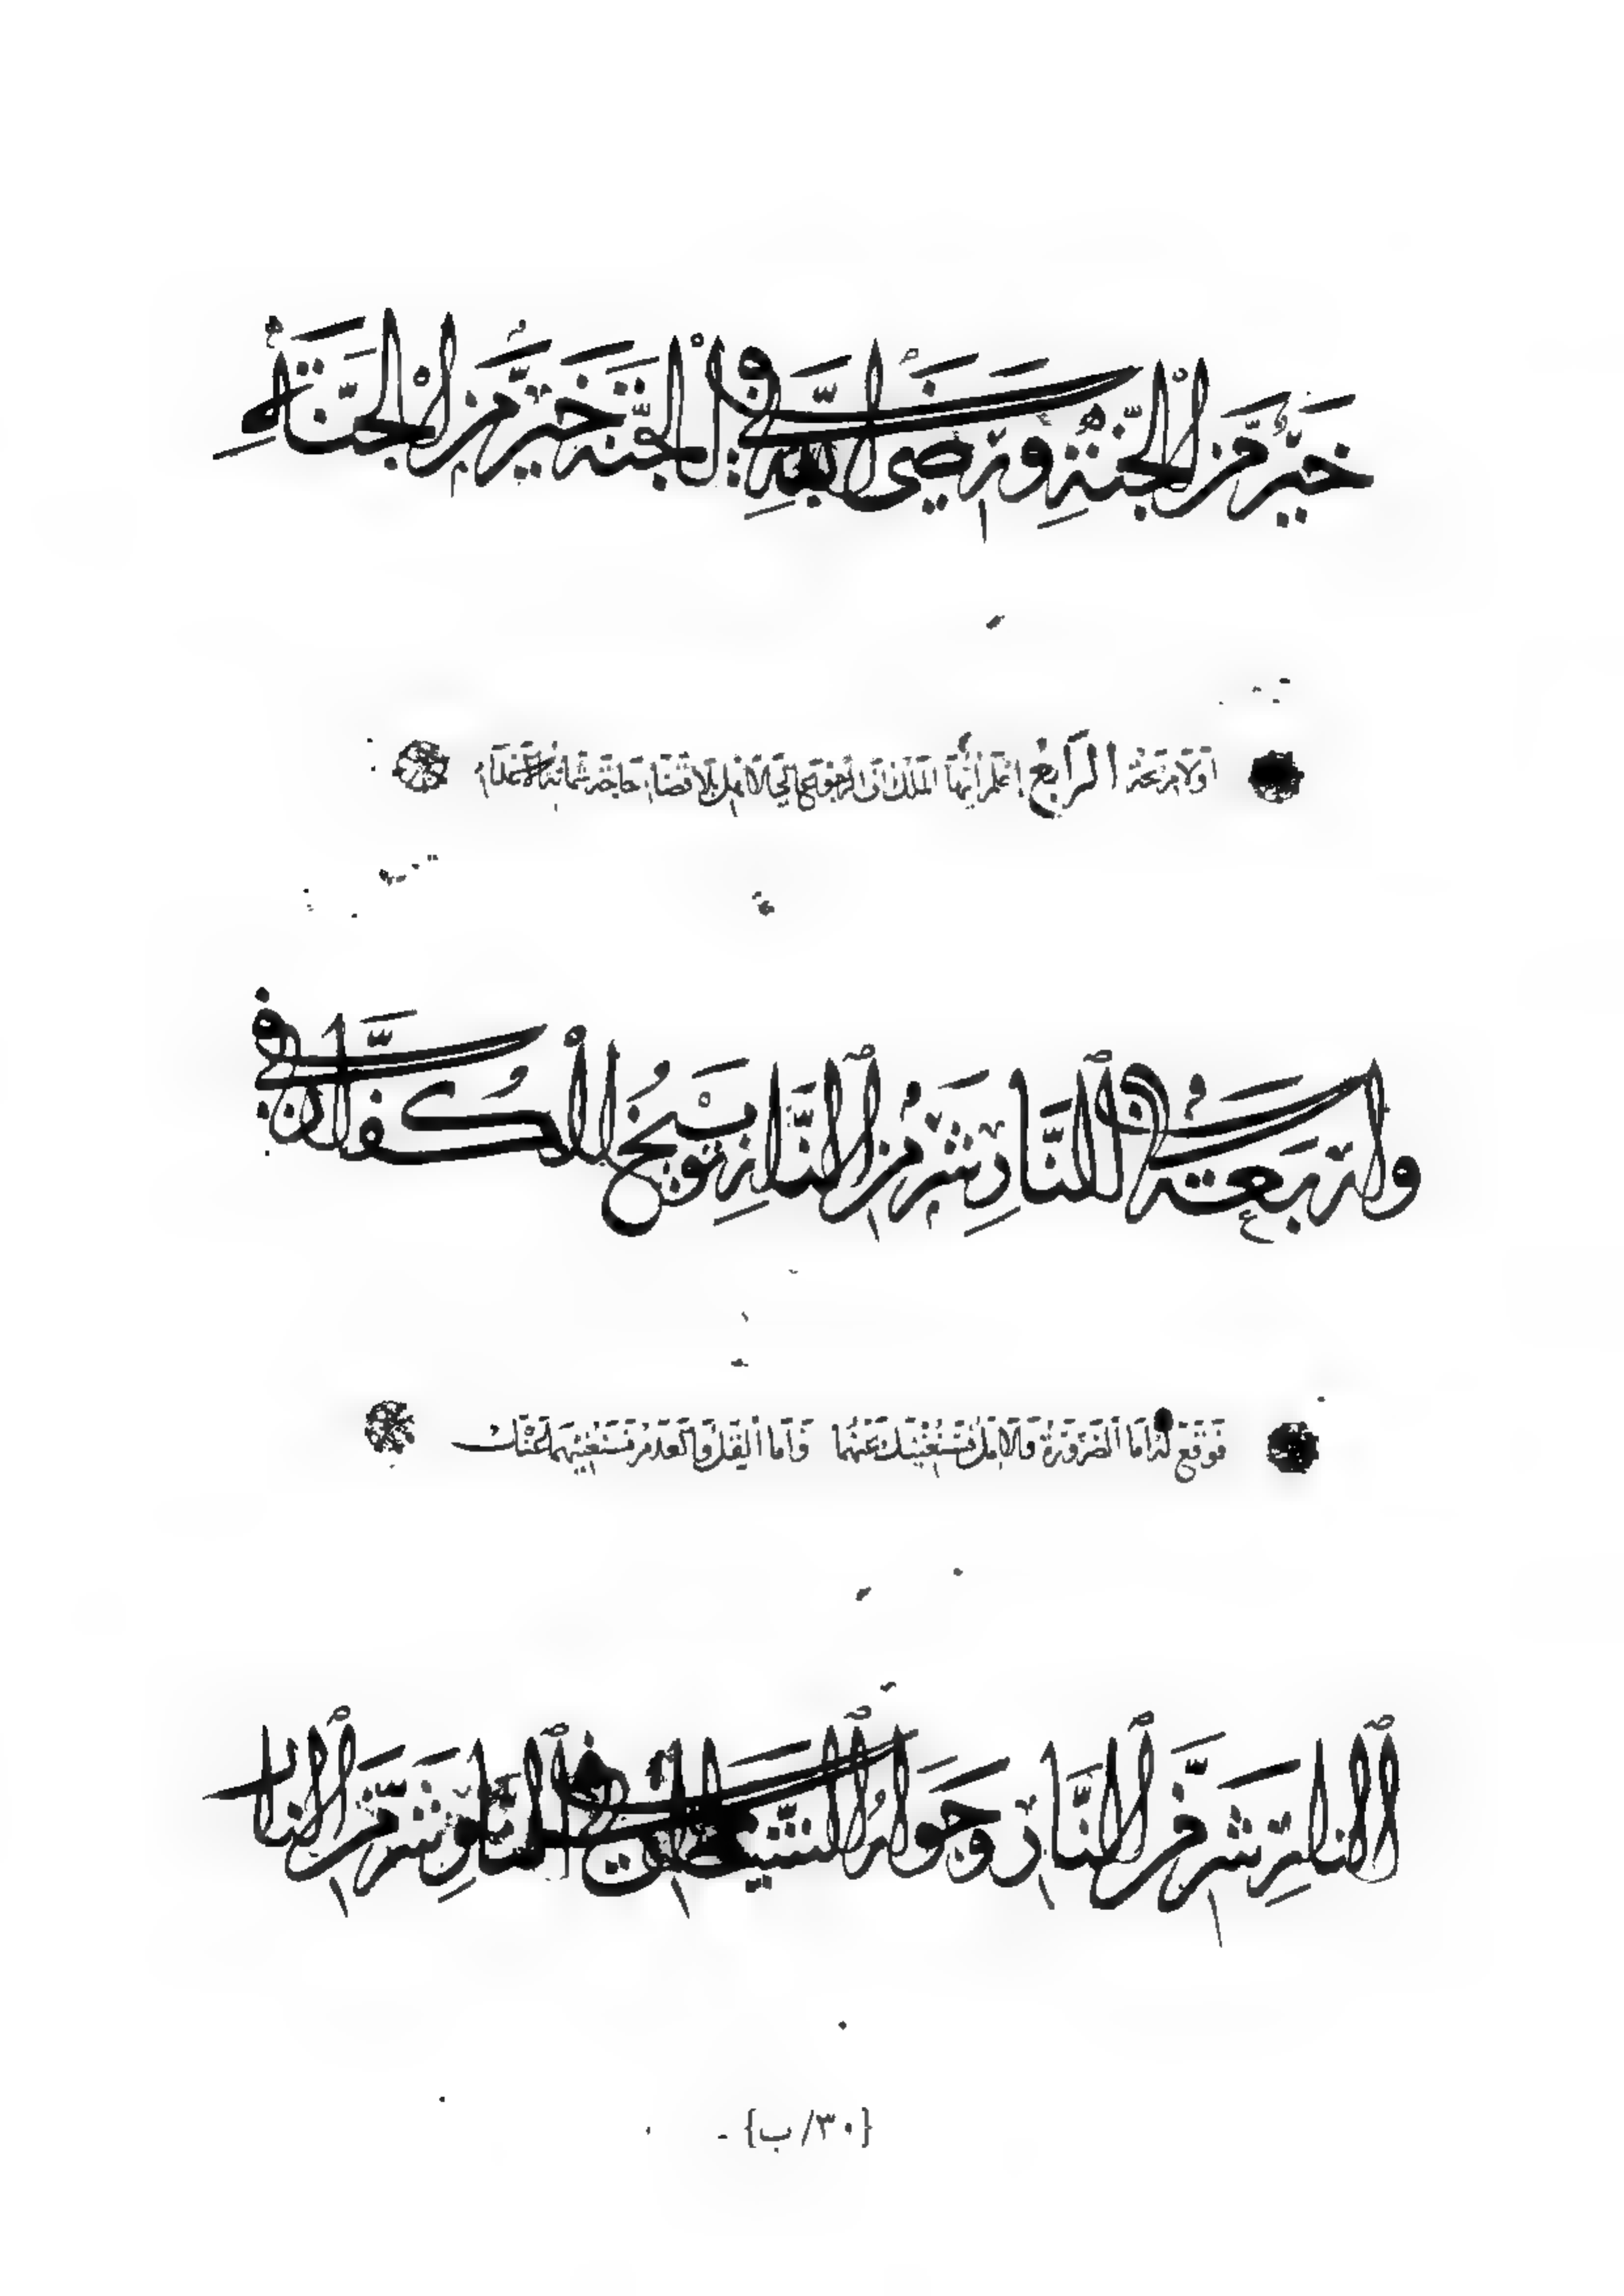 خَيْرٌ مِنَ الْجَنَّةِ وَرِضَى اللَّهِ فِي الْجَنَّةِ خَيْرٌ مِنَ الْجَنَّةِ
أولا مرتجعة الرابع اعلم أيها الملك أن الرجوع إلى الأهل بلا قضاء حاجة شماتة الأعداء
وَأَرْبَعَةٌ فِي النَّارِ شَرٌّ مِنَ النَّارِ تَوْبِيخُ الْكُفَّارِ فِي
فوقع له أما الضرورة والأمل فسنغنيك عنهما وأما القل والعدم فسنغنيهما عنك
النَّارِ شَرٌّ مِنَ النَّارِ وَجِوَارُ الشَّيْطَانِ فِي النَّارِ شَرٌّ مِنَ النَّارِ
{٣٠/ب}